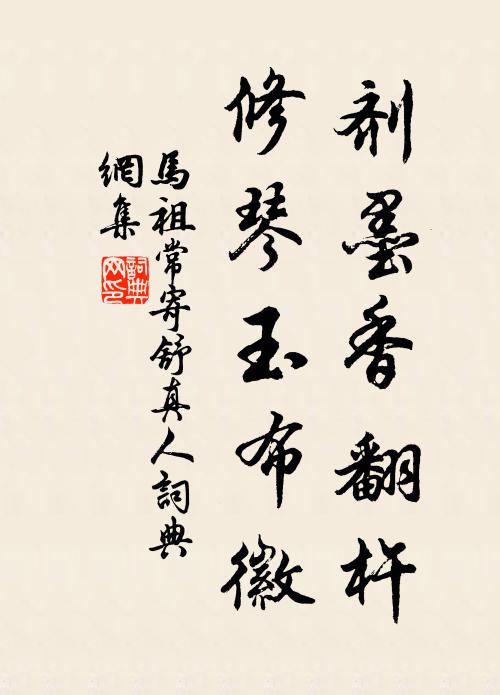 剂墨香翻杵
修琴玉布徽
馬祖常寄舒真人詞典
網集
詞典網印